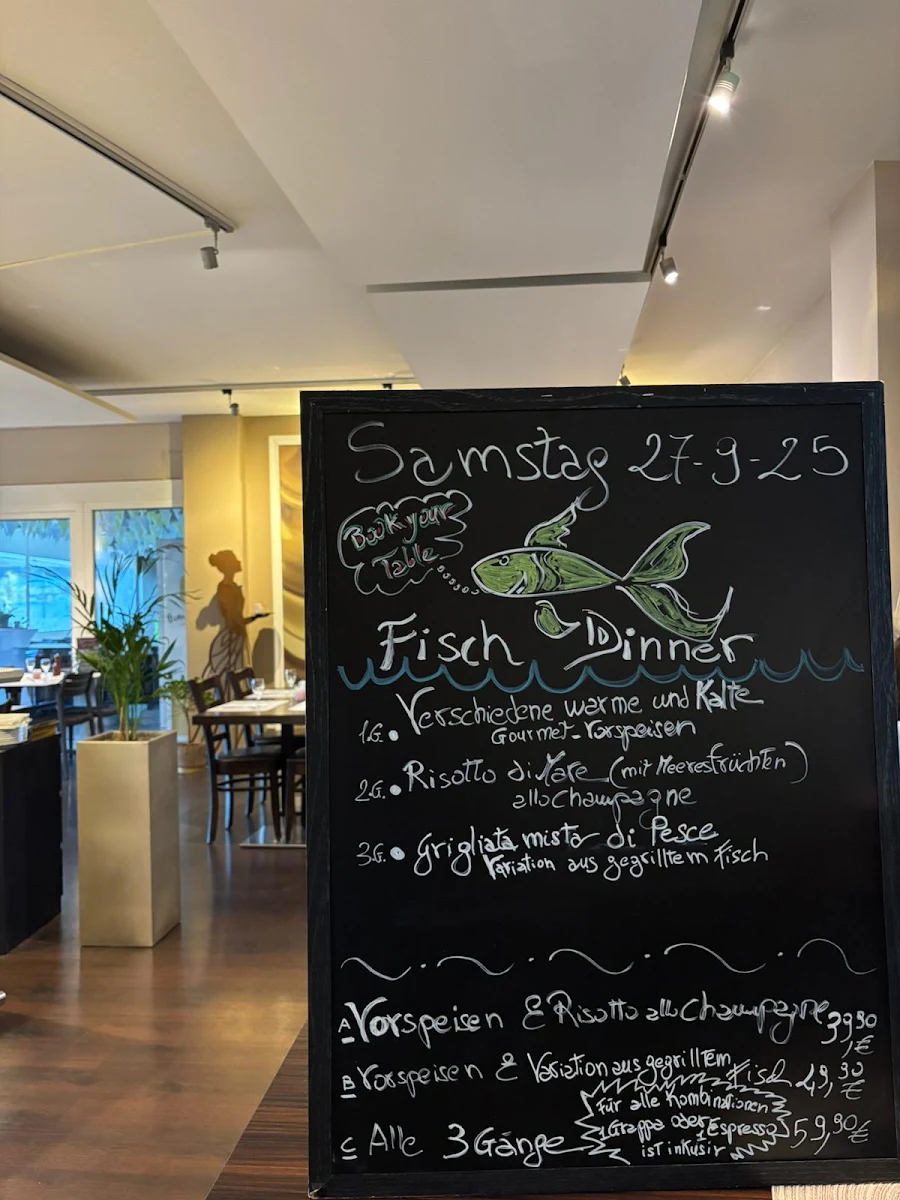 Samstag 27-9-25
Book your
Table
Fisch Dinner
1G. • Verschiedene warme und Kalte
Gourmet-Vorspeisen
2G. • Risotto di Mare (mit Meeresfrüchten)
allo Champagne
3G. • Grigliata mista di Pesce
Variation aus gegrilltem Fisch
A Vorspeisen & Risotto allo Champagne 39,90 €
B Vorspeisen & Variation aus gegrilltem Fisch 49,90 €
Für alle Kombinationen
1 Grappa oder 1 Espresso
ist inkusir
C Alle 3 Gänge 59,90 €